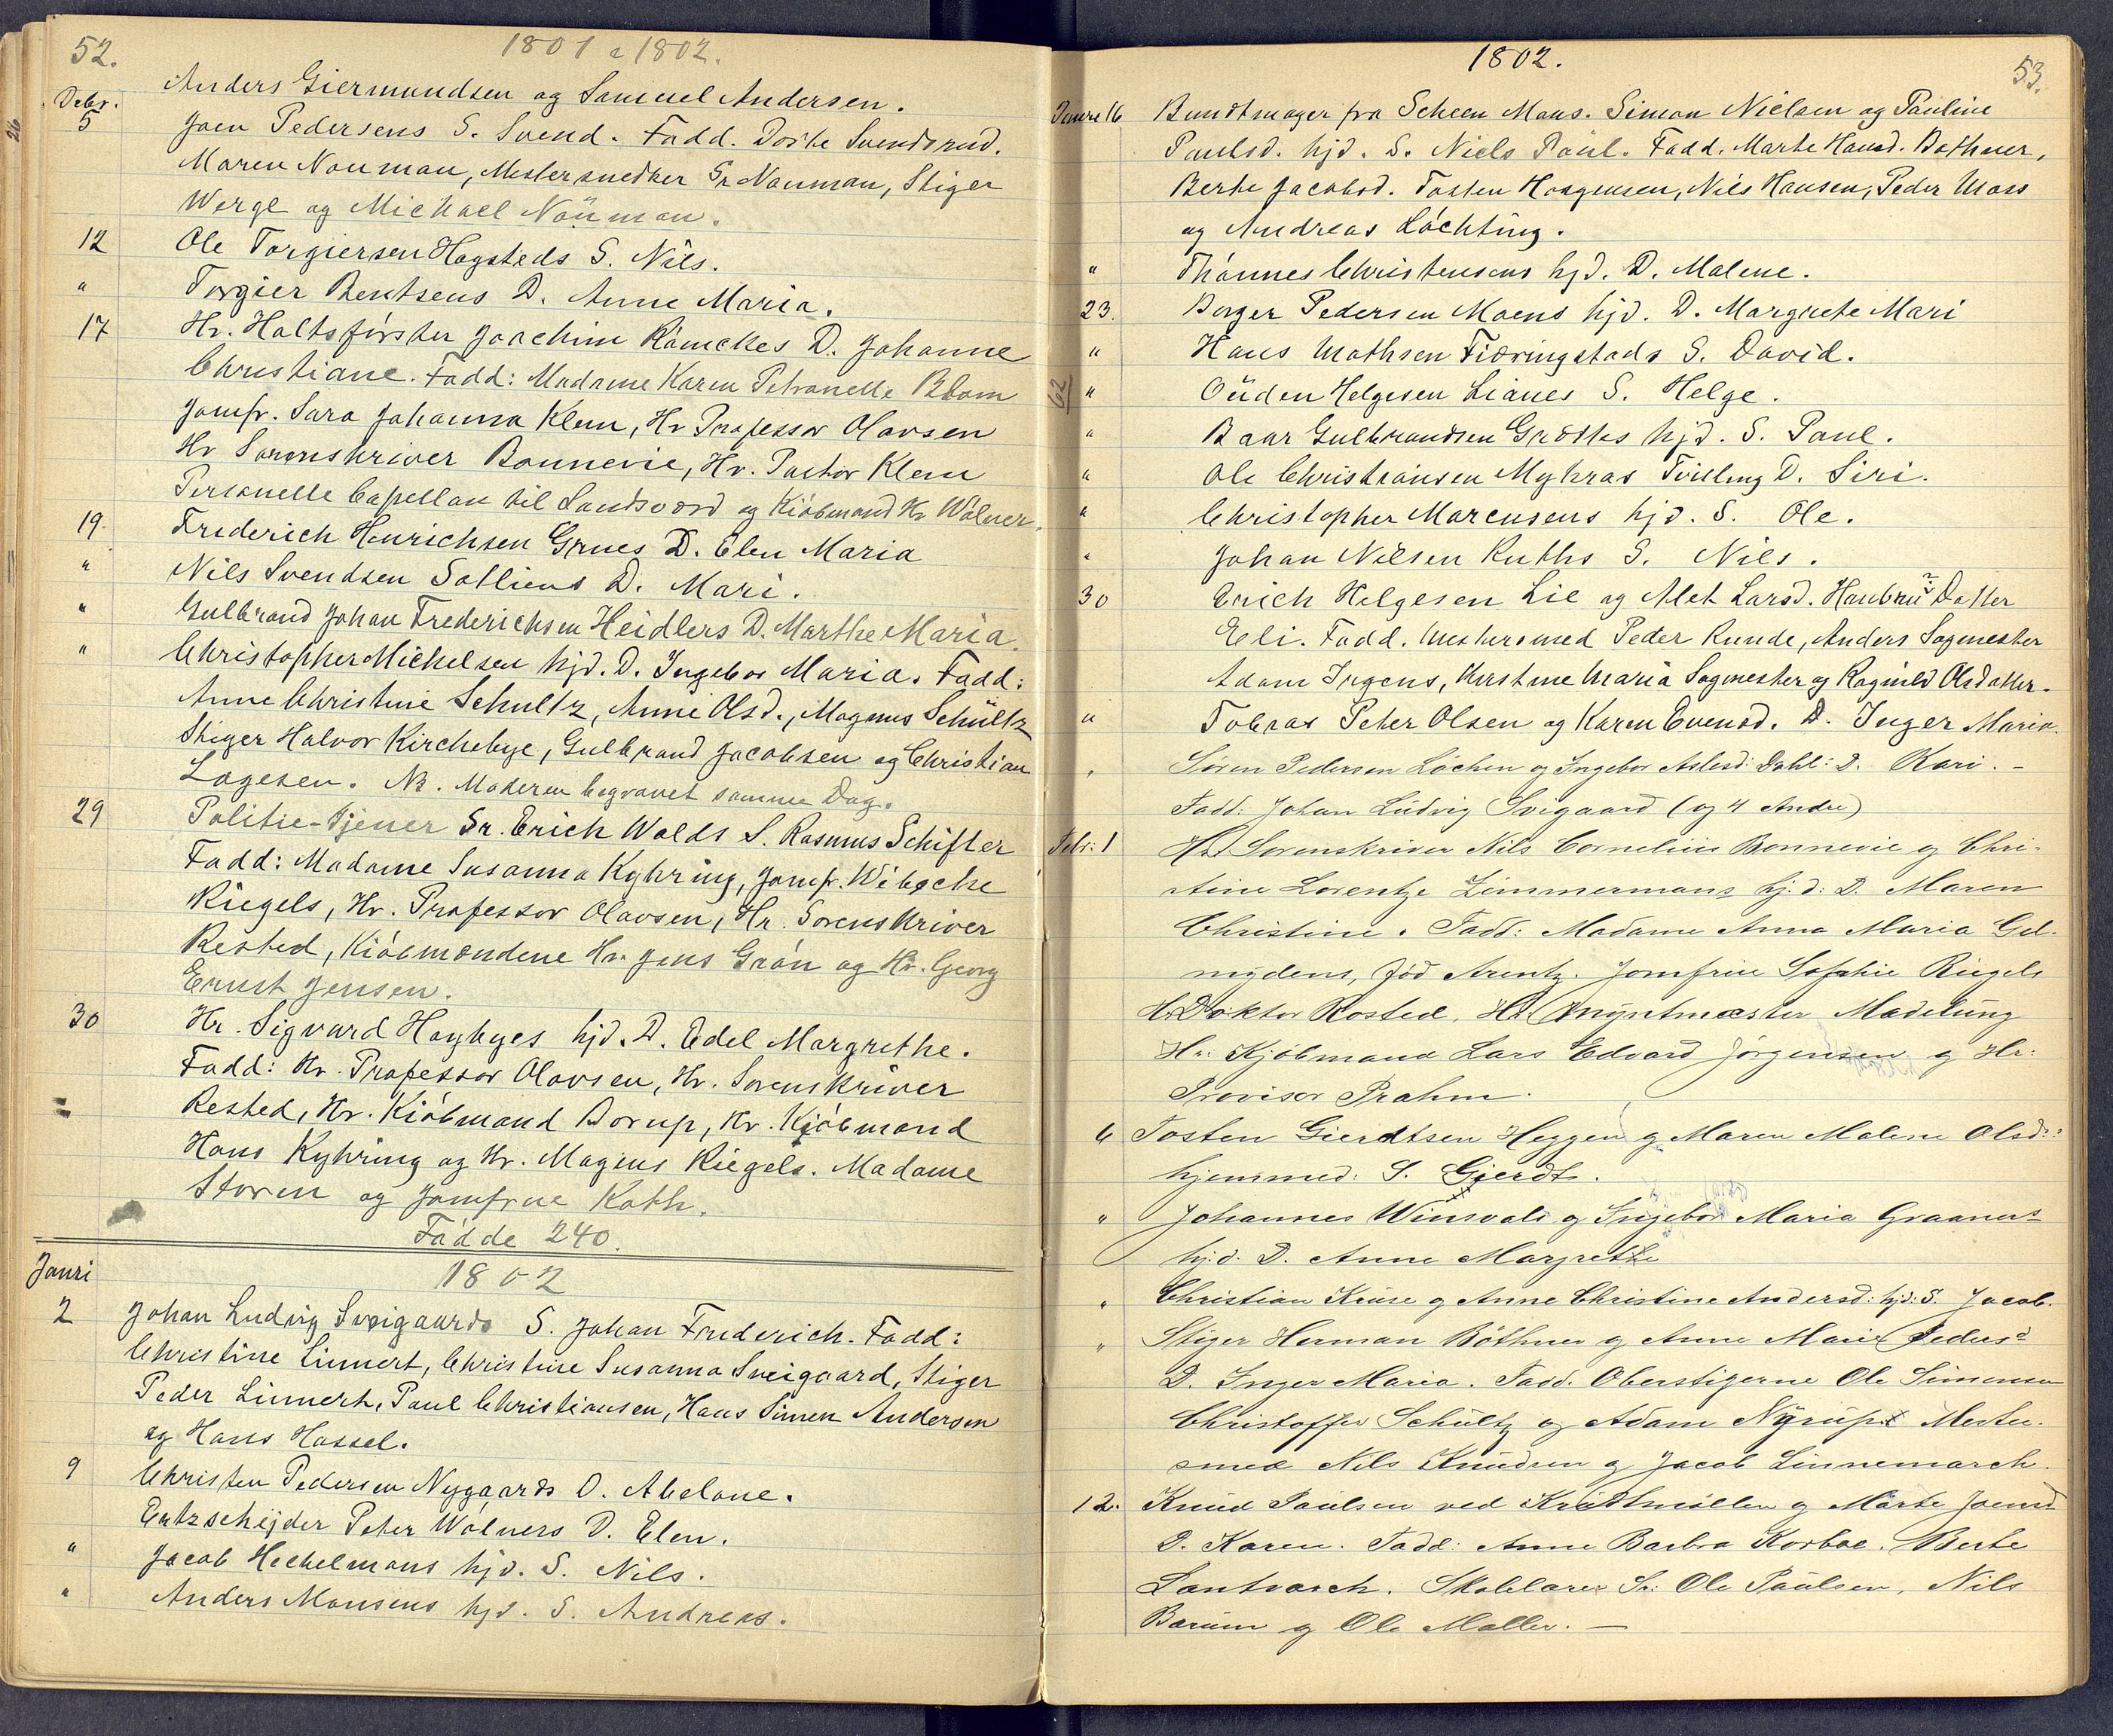 52.
1801 & 1802.
Anders Giermundsen og Samuel Andersen.
Debr.
5 Joen Pedersens S. Svend. Fadd. Dorte Svendsrud.
Maren Nouman, Mestersnedker Sr Nauman, Stiger
Wergl og Michael Nouman.
12 Ole Torgiersen Hogsteds S. Nils.
" Torgier Bentsens D. Anne Maria.
17 Hr. Holtsförster Joachim Römckes D. Johanne
Christiane. Fadd: Madame Karen Petronelle Blom
Jomfr. Sara Johanna Klem, Hr Professor Olavsen
Hr Sorenskriver Bonnevie, Hr. Pastor Klem
Personelle Capellan til Sandsværd og Kiöbmand Hr Wölner.
19. Frederich Henrichsen Grues D. Elen Maria
" Nils Svendsen Satliens D. Mari.
" Gulbrand Johan Frederichsen Heidlers D. Marthe Maria.
" Christopher Michelsen hjd. D. Ingebor Maria. Fadd:
Anne Christine Schultz, Anne Olsd., Magnus Schültz
Stiger Halvor Kirchebye, Gulbrand Jacobsen og Christian
Lagesen. NB. Moderen begravet samme Dag.
29 Politie-Tjener Sr. Erich Wolds S. Rasmus Schifter
Fadd: Madame Susanna Kyhring, Jomfr. Wibeche
Riegels, Hr. Professor Olavsen, Hr. Sorenskriver
Rested, Kiöbmændene Hr. Jens Grön og Hr. Georg
Ernst Jensen.
30 Hr. Sigvard Hoybyes hjd. D. Edel Margrethe.
Fadd: Hr. Professor Olavsen, Hr. Sorenskriver
Rested, Hr. Kiöbmand Borup, Hr. Kiöbmand
Hans Kyhring og Hr. Magnus Riegels. Madame
Storm og Jomfrue Kath.
Födde 240.
Janri 1802
2 Johan Ludvig Sveigaards S. Johan Frederich. Fadd:
Christine Linnert, Christine Susanna Sveigaard, Stiger
Peder Linnert, Paul Christiansen, Hans Simen Andersen
og Hans Hassel.
9 Christen Pedersen Nygaards D. Abelone.
Ertzscheider Peter Wölners D. Elen.
" Jacob Hechelmans hjd. S. Nils.
" Anders Monsens hjd. S. Andreas.
1802.
53.
16 Bundtmager fra Scheen Mons. Simon Nielsen og Pauline
Paulsd. hjd. S. Niels Paul. Fadd. Marte Hansd. Bothner,
Berte Jacobsd. Tosten Haagensen, Nils Hansen, Peder Moss
og Andreas Löchting.
" Thönnes Christensens hjd. D. Malene.
23. Borger Pedersen Moens hjd. D. Margrete Mari
" Hans Mathsen Fiæringstads S. David.
62 " Ouden Helgesen Lianes S. Helge.
" Baar Gulbrandsen Grosths hjd. S. Paul.
" Ole Christiansen Myhras Tvilling D. Siri.
" Christopher Marcusens hjd. S. Ole.
" Johan Nilsen Ruths S. Nils.
30 Erich Helgesen Lie og Alet Larsd. Haubru? Datter
Eli. Fadd. Mestersmed Peder Runde, Anders Sagmester
Adam Irgens, Kirstine Maria Sagmester og Ragnild Olsdatter.
" Tobras Peter Olsen og Karen Evensd. D. Inger Maria.
" Søren Pedersen Löchen og Ingebor Aslesd: Dahl: D. Kari. –
Fadd: Johan Ludvig Svigaard (og 4 Andre)
Febr: 1 Hr. Sorenskriver Nils Cornelius Bonnevie og Chri-
stine Lorentze Zimmermans hj:d: D. Maren
Christine. Fadd: Madame Anna Maria Gel-
mydens, född Arentz. Jomfrue Sophie Riegels
Hr Doktor Rosted, Hr. Myntmæster Madelung
Hr: Kjöbmand Lars Edvard Jörgensen og Hr:
Provisor Prahm.
6 Tosten Gierdtsen Heggen og Maren Malene Olsd::
hjemmed: S. Gierdt.
" Johannes Winsvals og Ingebor Maria Graaners
hj:d. D. Anne Margrethe
" Christian Kruse og Anne Christine Andersd: hjd: S. Jacob.
" Stiger Herman Böthner og Anne Marie Pedersd
D. Inger Maria. Fadd. Oberstigerne Ole Simensen
Christoffer Schultz og Adam Nyrup. Mester-
smed Nils Knudsen og Jacob Linnemarch.
12. Knud Paulsen ved Krudtmöllen og Marte Joensd
D. Karen. Fadd: Anne Barbra Korboe. Berte
Lantvarch. Skolelærer Sr: Ole Paulsen, Nils
Bærum og Ole Møller. –